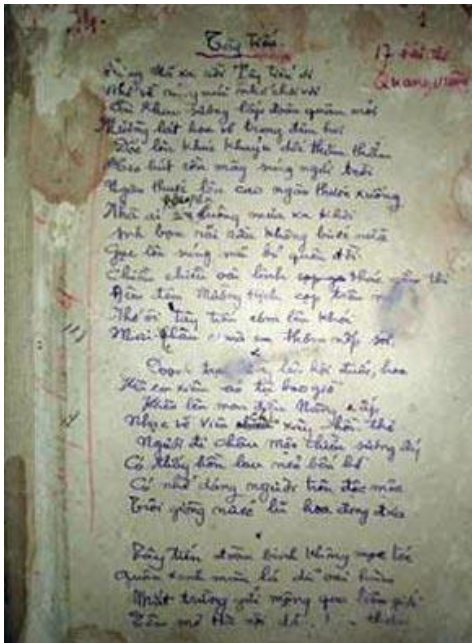 Tây Tiến
17 bài thơ
Quang Dũng
Sông Mã xa rồi Tây tiến ơi
Nhớ về rừng núi nhớ chơi vơi
Sài Khao sương lấp đoàn quân mỏi
Mường Lát hoa về trong đêm hơi
Dốc lên khúc khuỷu dốc thăm thẳm
Heo hút cồn mây súng ngửi trời
Ngàn thước lên cao ngàn thước xuống
Nhà ai Pha luông mưa xa khơi
Anh bạn dãi dầu không bước nữa
Gục lên súng mũ bỏ quên đời
Chiều chiều oai linh thác gầm thét
Đêm đêm Mường Hịch cọp trêu
Nhớ ôi tây tiến cơm lên khói
Mai Châu mùa em thơm nếp xôi
Doanh trại bừng lên hội đuốc, hoa
Kìa em xiêm áo tự bao giờ
Khèn lên man điệu Nàng e ấp
Nhạc về Viên xây hồn thơ
Người đi châu Mộc chiều sương ấy
Có thấy hồn lau nẻo bến bờ
Có nhớ dáng người trên độc mộc
Trôi giòng nước lũ hoa đong đưa
Tây tiến đoàn binh không mọc tóc
Quân xanh màu lá dữ oai hùm
Mắt trừng gửi mộng qua biên giới